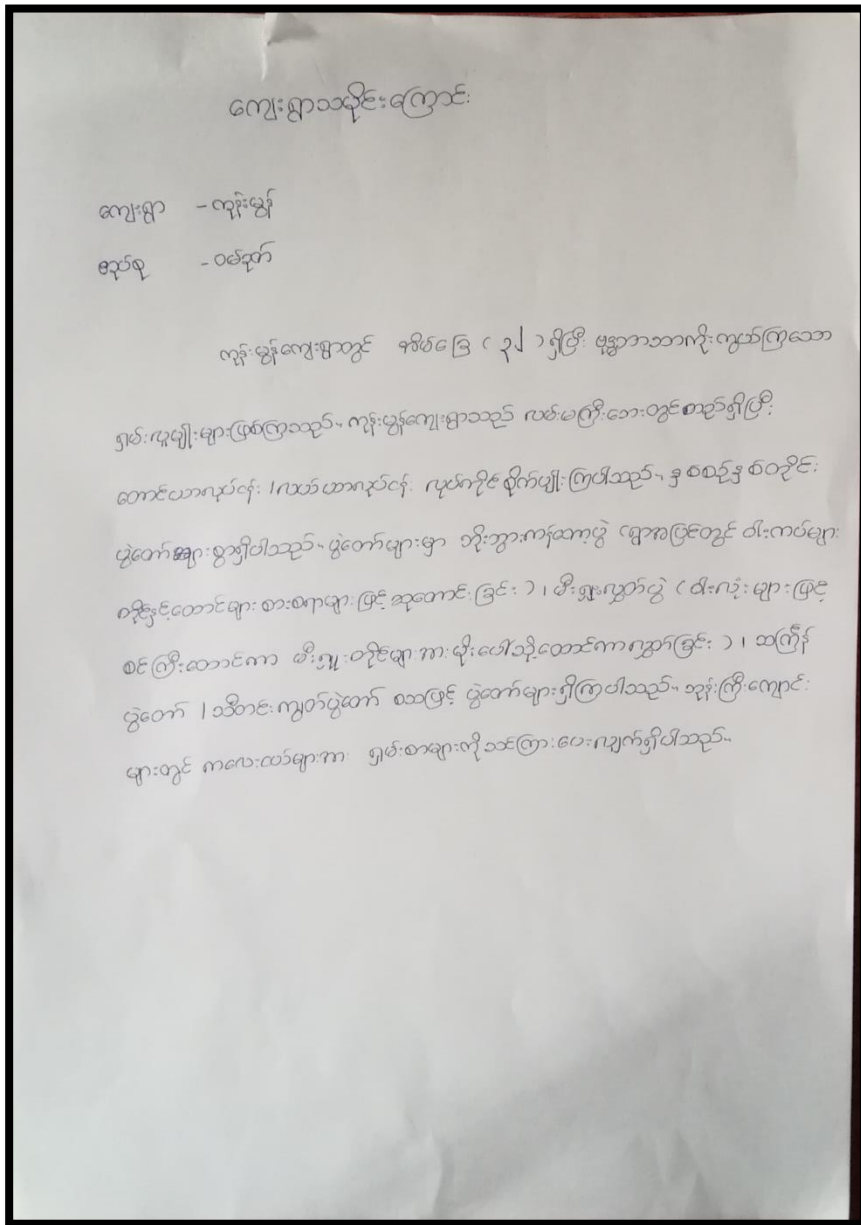 ကျေးရွာသမိုင်းကြောင်း
ကျေးရွာ - ကုန်းမွန်
စုပ်စု - ဝမ်ဒုက်
ကုန်းမွန်ကျေးရွာတွင် အိမ်ခြေ ( ၃၂ ) ရှိပြီး ဗုဒ္ဓဘာသာကိုးကွယ်ကြသော
ရှမ်းလူမျိုးများဖြစ်ကြသည်။ ကုန်းမွန်ကျေးရွာသည် လမ်းမကြီးဘေးတွင်တည်ရှိပြီး
တောင်ယာလုပ်ငန်း ၊ လယ်ယာလုပ်ငန်း လုပ်ကိုင်စိုက်ပျိုးကြပါသည်။ နှစ်စဉ်နှစ်တိုင်း
ပွဲတော်များစွာရှိပါသည်။ ပွဲတော်များမှာ ဘိုးဘွားကန်တော့ပွဲ (ရွာအပြင်တွင် ဝါးကပ်များ
တိုင်နှင့်ထောင်များ စားစရာများဖြင့် ဆုတောင်းခြင်း ) ၊ မီးရှူးလွှတ်ပွဲ ( ဝါးလုံးများဖြင့်
စင်ကြီးထောင်ကာ မီးရှူးတိုင်များအား မိုးပေါ်သို့ထောင်ကာလွှတ်ခြင်း ) ၊ သင်္ကြန်
ပွဲတော် ၊ သီတင်းကျွတ်ပွဲတော် စသဖြင့် ပွဲတော်များရှိကြပါသည်။ ဘုန်းကြီးကျောင်း
များတွင် ကလေးငယ်များအား ရှမ်းစာများကိုသင်ကြားပေးလျက်ရှိပါသည်။